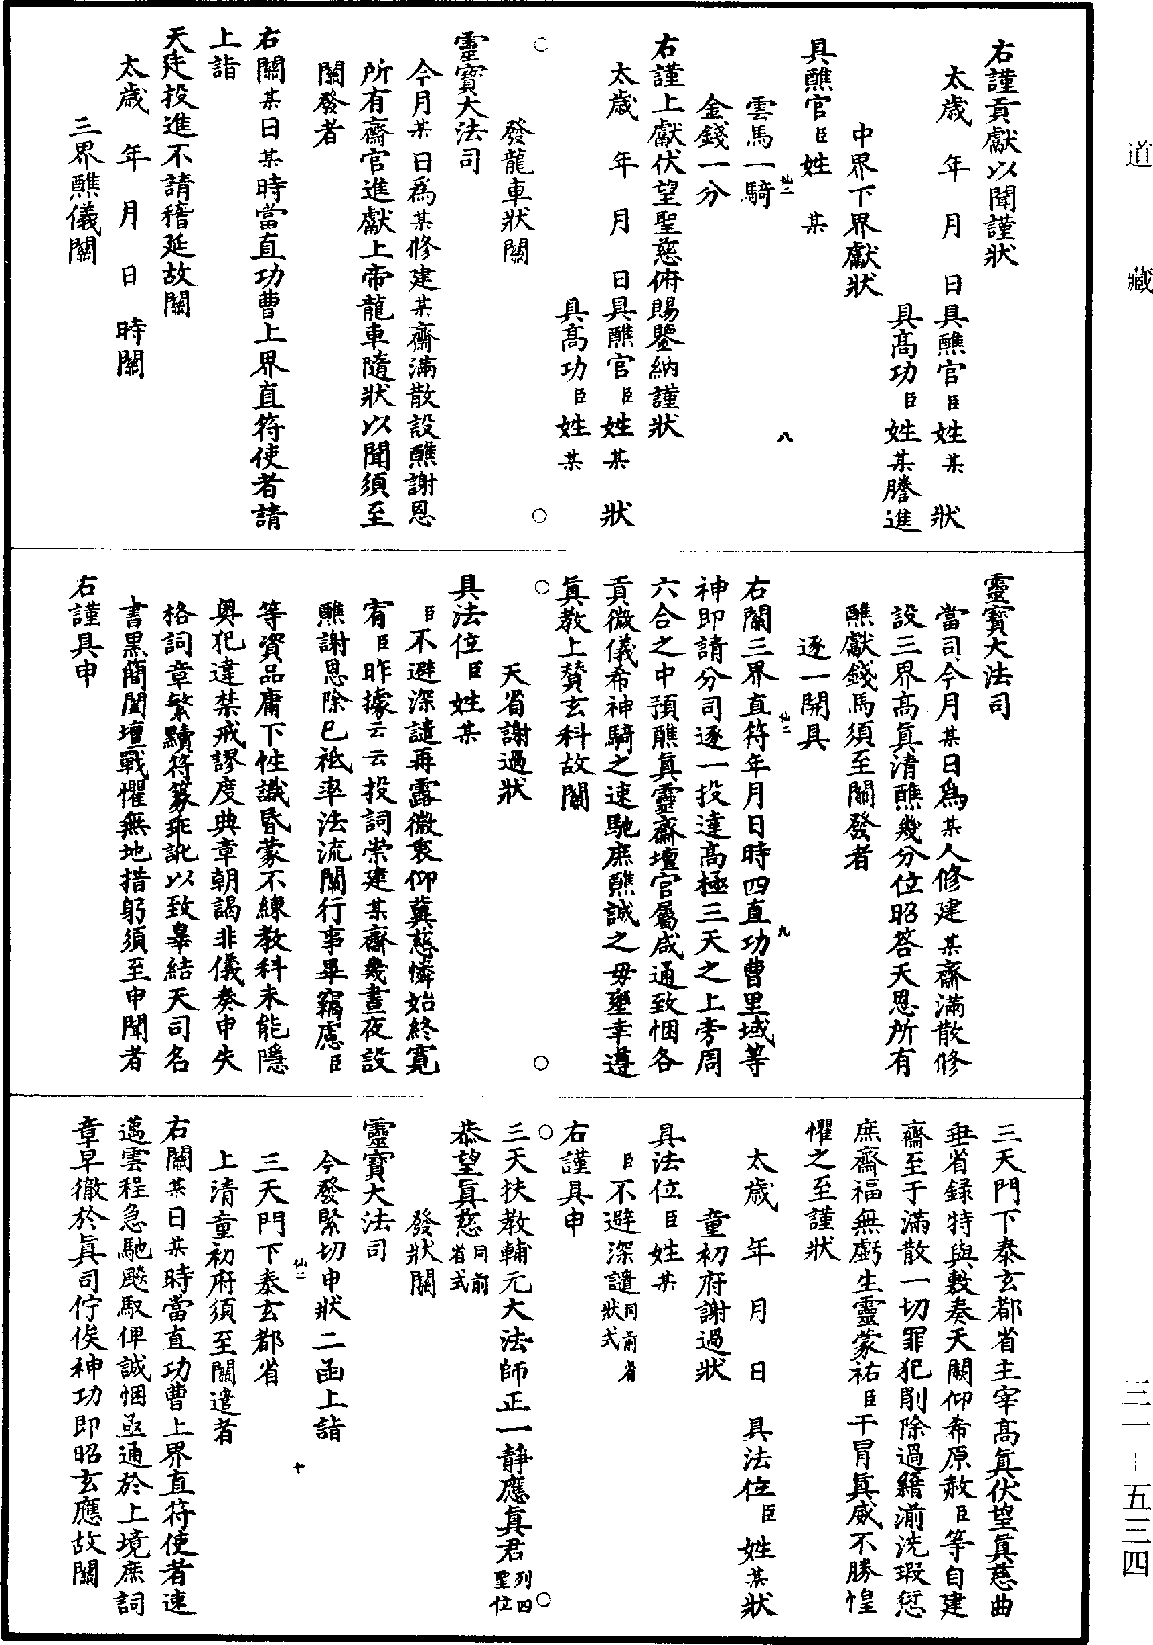 道藏
右謹貢獻以聞謹狀
太歲 年 月 日具醮官臣姓某 狀
具高功臣姓某謄進
中界下界獻狀
具醮官臣姓某
雲馬一騎
金錢一分
右謹上獻伏望聖慈俯賜鑒納謹狀
太歲 年 月 日具醮官臣姓某 狀
具高功臣姓某
發龍車狀關
靈寶大法司
今月某日爲某修建某齋滿散設醮謝恩
所有齋官進獻上帝龍車隨狀以聞須至
關發者
右關某日某時當直功曹上界直符使者請
上詣
天廷投進不請稽延故關
太歲 年 月 日 時關
三界醮儀關
靈寶大法司
當司今月某日爲某人修建某齋滿散修
設三界高眞清醮幾分位昭答天恩所有
醮獻錢馬須至關發者
逐一開具
右關三界直符年月日時四直功曹里域等
神即請分司逐一投達高極三天之上旁周
六合之中預醮眞靈齋壇官屬咸通致悃各
貢微儀希神騎之速馳庶醮誠之毋壅幸遵
眞教上贊玄科故關
天省謝過狀
具法位臣姓某
臣不避深譴再露微衷仰冀慈憐始終寬
宥臣昨據云云投詞崇建某齋幾晝夜設
醮謝恩除已祗率法流關行事畢竊慮臣
等資品庸下性識昏蒙不練教科未能隱
奧犯違禁戒謬度典章朝謁非儀奏申失
格詞章繁黷符篆乖訛以致辠結天司名
書黑簡闔壇戰懼無地措躬須至申聞者
右謹具申
三天門下泰玄都省主宰高眞伏望眞慈曲
垂省錄特與敷奏天闕仰希原赦臣等自建
齋至于滿散一切罪犯削除過籍湔洗瑕愆
庶齋福無虧生靈蒙祐臣干冒眞威不勝惶
懼之至謹狀
太歲 年 月 日 具法位臣姓某狀
童初府謝過狀
具法位臣姓某
臣不避深譴同前省狀式
右謹具申
三天扶教輔元大法師正一靜應眞君列四聖位
恭望眞慈同前省式
發狀關
靈寶大法司
今發緊切申狀二函上詣
三天門下泰玄都省
上清童初府須至關遣者
右關某日某時當直功曹上界直符使者速
邁雲程急馳飈馭俾誠悃亟通於上境庶詞
章早徹於眞司佇俟神功即昭玄應故關
三一-五三四